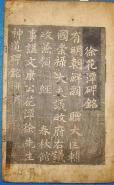 徐花潭碑銘
有明朝鮮國 贈大匡輔
國崇祿大夫議政府右議
政兼領經 春秋館
事謚文康公花潭徐先生
神道碑銘